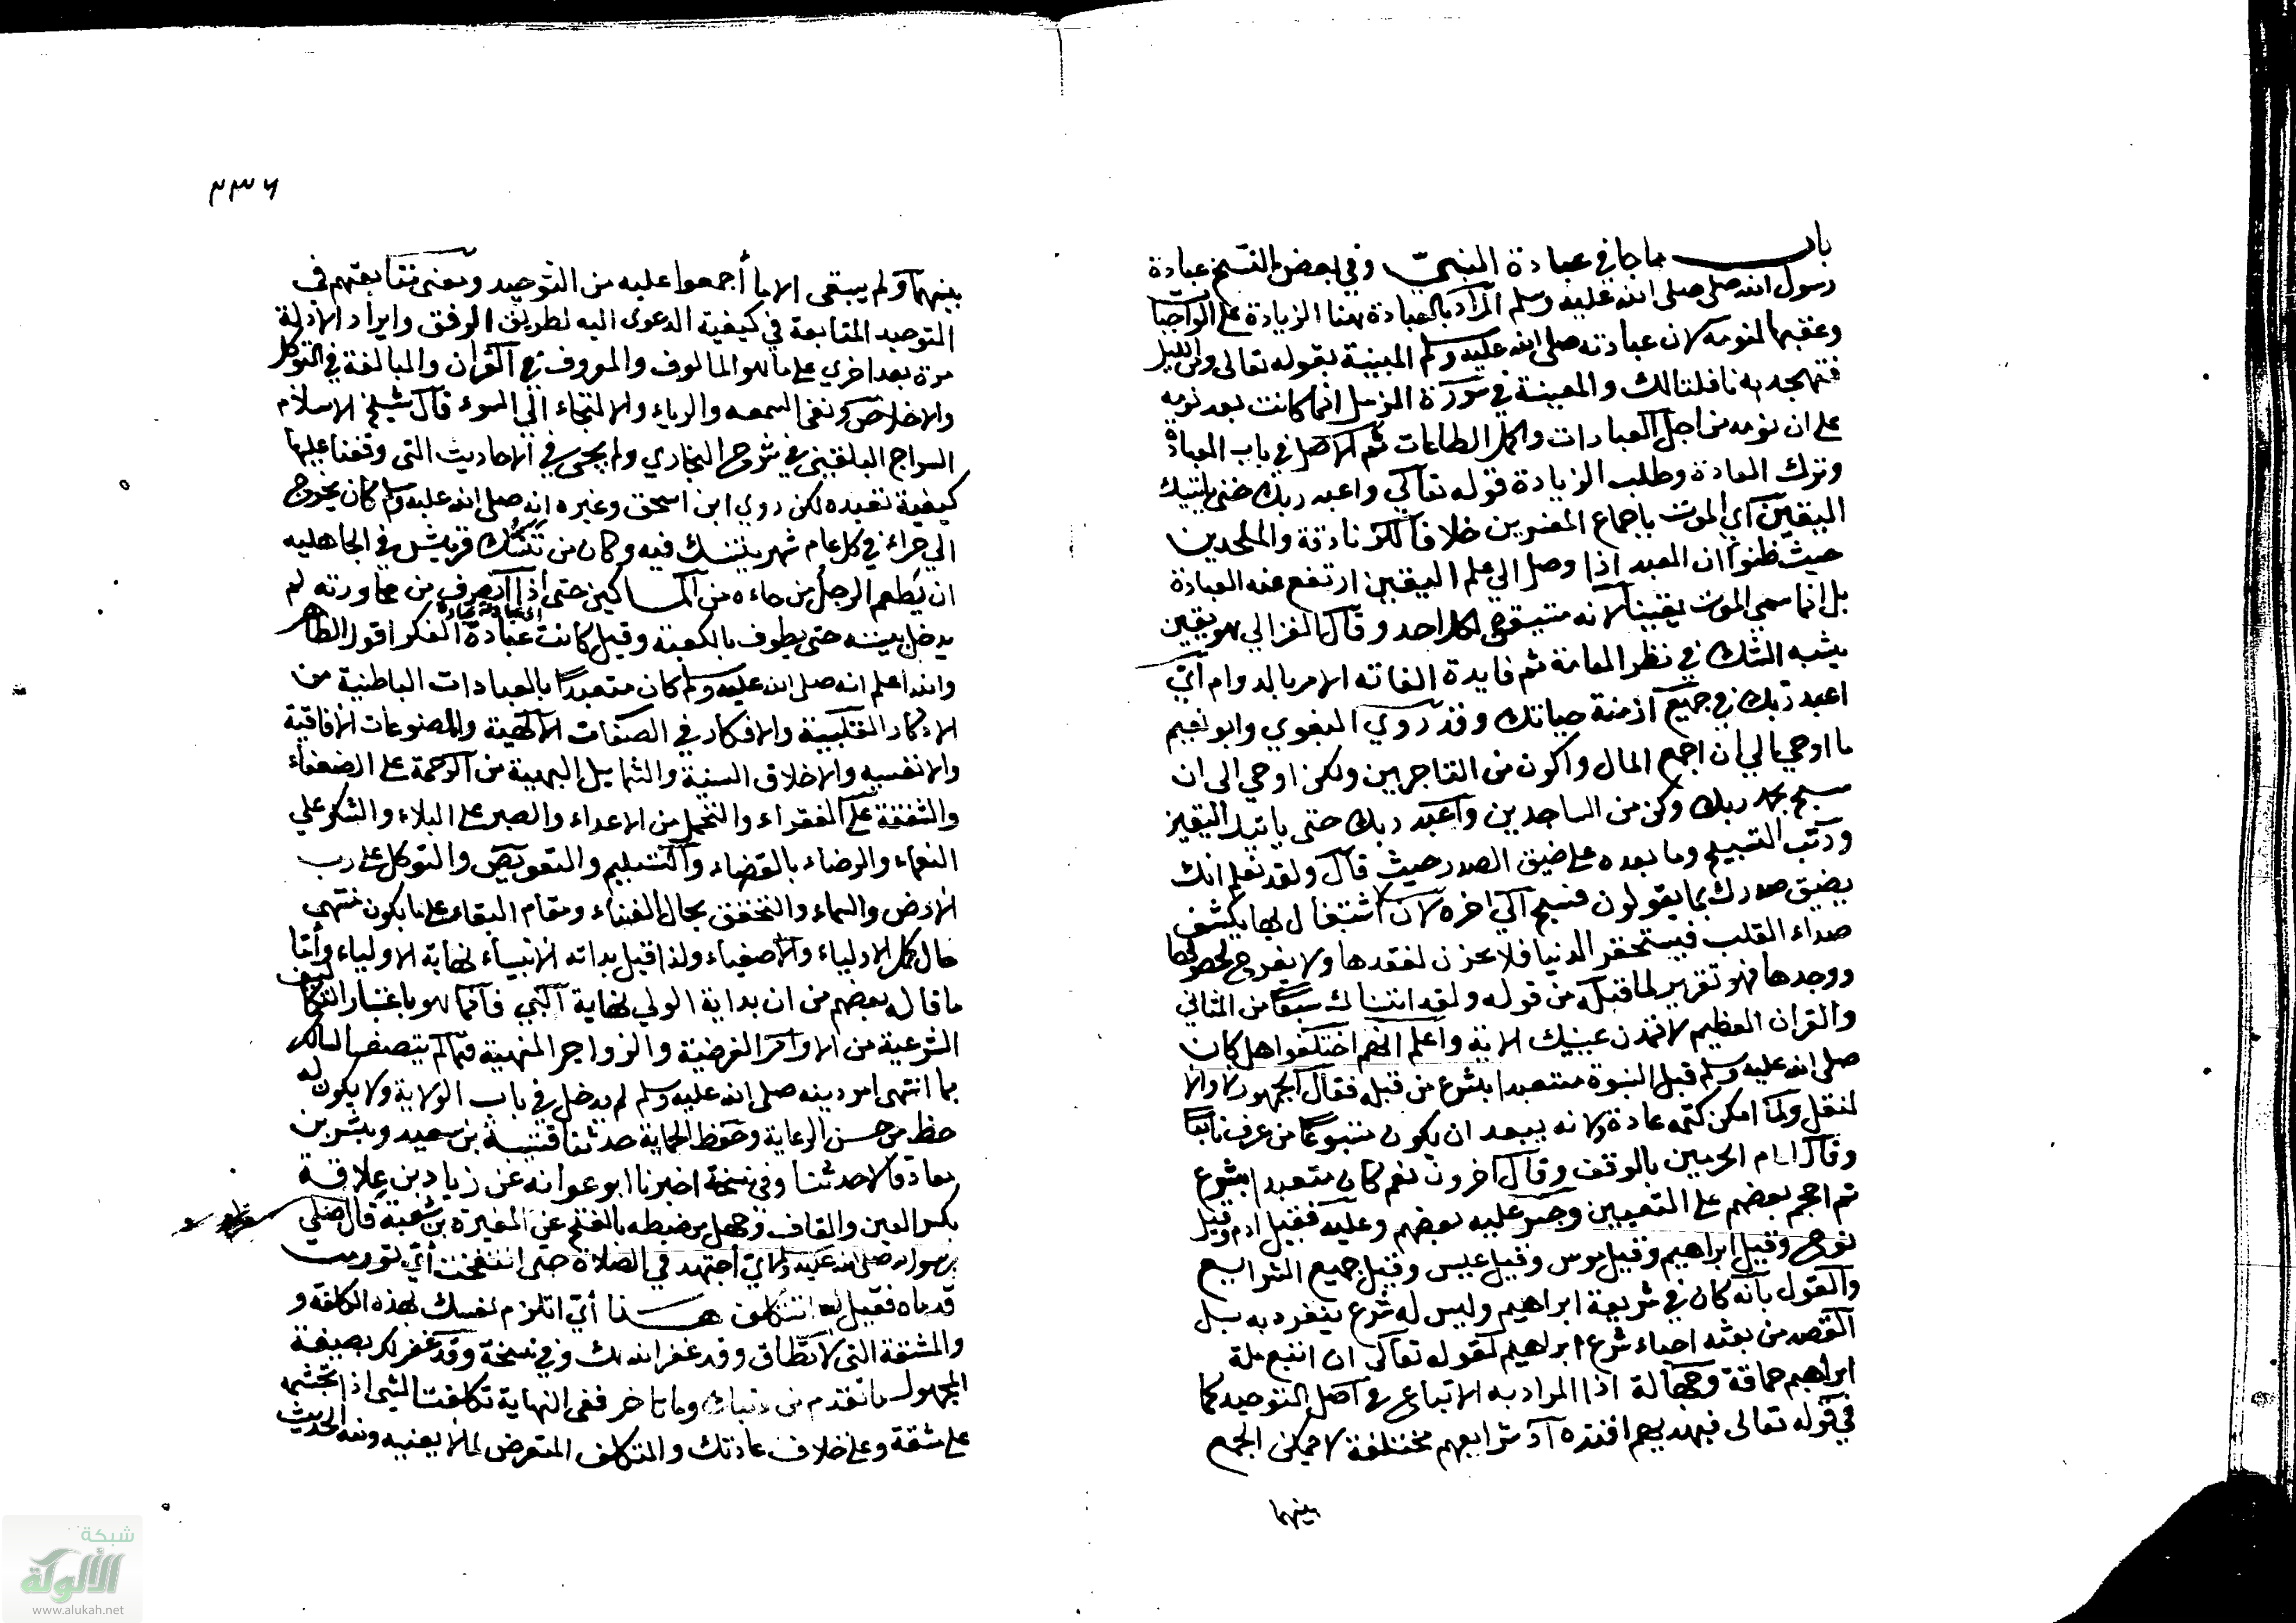 باب ما جا في عبادة النبي وفي بعض النسخ عبادة
رسول الله صلى صلى الله عليه وسلم المراد بالعبادة هنا الزيادة على الواجبات
وعقبها لنومه لان عبادته صلى الله عليه وسلم المبينة بقوله تعالى ومن الليل
فتهجد به نافلة لك والمعينة في سورة المزمل انما كانت بعد نومه
على ان نومه من اجل العبادات واكمل الطاعات ثم الاصل في باب العبادة
وترك العادة وطلب الزيادة قوله تعالى واعبد ربك حتى ياتيك
اليقين اي الموت باجماع المفسرين خلافا للزنادقة والملحدين
حيث ظنوا ان العبد اذا وصل الى علم اليقين ارتفع عنه العبادة
بل انما سمي الموت يقينا لانه متيقن لكل احد وقال الغزالي هو يقين
يشبه الشك في نظر العامة ثم فايدة الغاية الامر بالدوام اي
اعبد ربك في جميع ازمنة حياتك وقد روي البغوي وابو نعيم
ما اوحي الي ان اجمع المال واكون من التاجرين ولكن اوحي الى ان
سبح بحمد ربك وكن من الساجدين واعبد ربك حتى ياتيك اليقين
ورتب التسبيح وما بعده على ضيق الصدر حيث قال ولقد نعلم انك
يضيق صدرك بما يقولون فسبح الى اخره لان الاشتغال بها يكشف
صداء القلب فيستحقر الدنيا فلا يحزن لفقدها ولا يفرح لحصولها
ووجدها فهو تقرير لما قبله من قوله ولقد اتيناك سبعا من المثاني
والقران العظيم لا تمدن عينيك الاية واعلم انهم اختلفوا هل كان
صلى الله عليه وسلم قبل النبوة متعبدا بشرع من قبله فقال الجمهور لا والا
لنقل ولما امكن كتمه عادة ولانه يبعد ان يكون متبوعا من عرف تابعا
وقال امام الحرمين بالوقف وقال اخرون نعم كان متعبدا بشرع
ثم احجم بعضهم على التعيين وجسر عليه بعضهم وعليه فقيل ادم وقيل
نوح وقيل ابراهيم وقيل موسى وقيل عيسى وقيل جميع الشرايع
والقول بانه كان في شريعة ابراهيم وليس له شرع ينفرد به بل
القصد من بعثه احياء شرع ابراهيم لقوله تعالى ان اتبع ملة
ابراهيم حماقة وجهالة اذ المراد به الاتباع في اصل التوحيد كما
في قوله تعالى فبهديهم اقتده اذ شرايعهم مختلفة لا يمكن الجمع
بينهما
٢٣٦
بينهما ولم يبقى الا ما أجمعوا عليه من التوحيد ومعنى متابعتهم في
التوحيد المتابعة في كيفية الدعوى اليه بطريق الرفق وايراد الادلة
مرة بعد اخري على ما هو المالوف والمعروف في القران والمبالغة في التوكل
والاخلاص ونفي السمعه والرياء والالتجاء الى السوء قال شيخ الاسلام
السراج البلقيني في شرح البخاري ولم يجئ في الاحاديث التي وقفنا عليها
كيفية تعبده لكن روي ابن اسحق وغيره انه صلى الله عليه وسلم كان يخرج
الى حراء في كل عام شهر يتنسك فيه وكان من تنسك قريش في الجاهليه
ان يطعم الرجل من جاءه من المساكين حتى اذا انصرف من مجاورته لم
يدخل بيته حتى يطوف بالكعبة وقيل كانت عبادة الفكر اقول الظاهر
والله اعلم انه صلى الله عليه وسلم كان متعبدا بالعبادات الباطنية من
الاذكار القلبية والافكار في الصفات الالهية والمصنوعات الافاقية
والانفسيه والاخلاق السنية والشمايل البهية من الرحمة على الضعفاء
والشفقة على الفقراء والتحمل من الاعداء والصبر على البلاء والشكر علي
النعماء والرضاء بالقضاء والتسليم والتفويض والتوكل على رب
الارض والسماء والتحقق بحال الفناء ومقام البقاء على ما يكون منتهى
حال كمل الاولياء والاصفياء ولذا قيل بداية الانبياء نهاية الاولياء وأما
ما قاله بعضهم من ان بداية الولي نهاية النبي فانما هو باعتبار التكاليف
الشرعية من الاوامر الفرضية والزواجر المنهية فما لم يتصف السالك
بما انتهى امر دينه صلى الله عليه وسلم لم يدخل في باب الولاية ولا يكون له
حظ من حسن الرعاية وحفظ الحماية حدثنا قتيبة بن سعيد وبشر بن
معاذ قالا حدثنا وفي نسخة اخبرنا ابو عوانه عن زياد بن علاقة
بكسر العين والقاف وجهل من ضبطه بالفتح عن المغيرة بن شعبة قال صلى
رسول الله صلى الله عليه وسلم اي اجتهد في الصلاة حتى انتفخت أي تورمت
قدماه فقيل له اتتكلف هذا أي اتلزم نفسك بهذه الكلفة و
والمشقة التي لا تطاق وقد غفر الله لك وفي نسخة وقد غفر لك بصيغة
المجهول ما تقدم من ذنبك وما تاخر ففي النهاية تكلفت الشي اذا تجشمته
على مشقة وعلى خلاف عادتك والمتكلف المتعرض لما لا يعنيه ومنه الحديث
شبكة
الألوكة
www.alukah.net